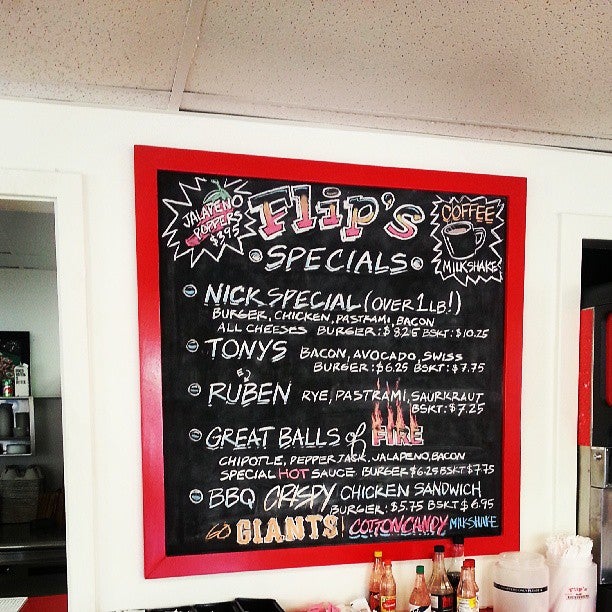 JALAPENO
POPPERS
$3.95
Flip's
COFFEE
MILKSHAKE
SPECIALS
NICK SPECIAL (OVER 1 LB!)
BURGER, CHICKEN, PASTRAMI, BACON
ALL CHEESES BURGER: $8.25 BSKT: $10.25
TONYS BACON, AVOCADO, SWISS
BURGER: $6.25 BSKT: $7.75
RUBEN RYE, PASTRAMI, SAURKRAUT
BSKT: $7.25
GREAT BALLS of FIRE
CHIPOTLE, PEPPERJACK, JALAPENO, BACON
SPECIAL HOT SAUCE BURGER $6.25 BSKT $7.75
BBQ CRISPY CHICKEN SANDWICH
BURGER: $5.75 BSKT $6.95
GO GIANTS! COTTON CANDY MILKSHAKE
Flip's